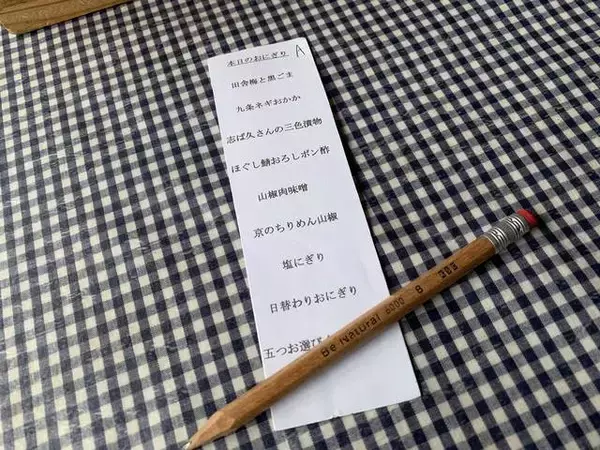 本日のおにぎり A
田舎梅と黒ごま
九条ネギおかか
志ば久さんの三色漬物
ほぐし鯖おろしポン酢
山椒肉味噌
京のちりめん山椒
塩にぎり
日替わりおにぎり
五つお選び
Be Natural 6000 B